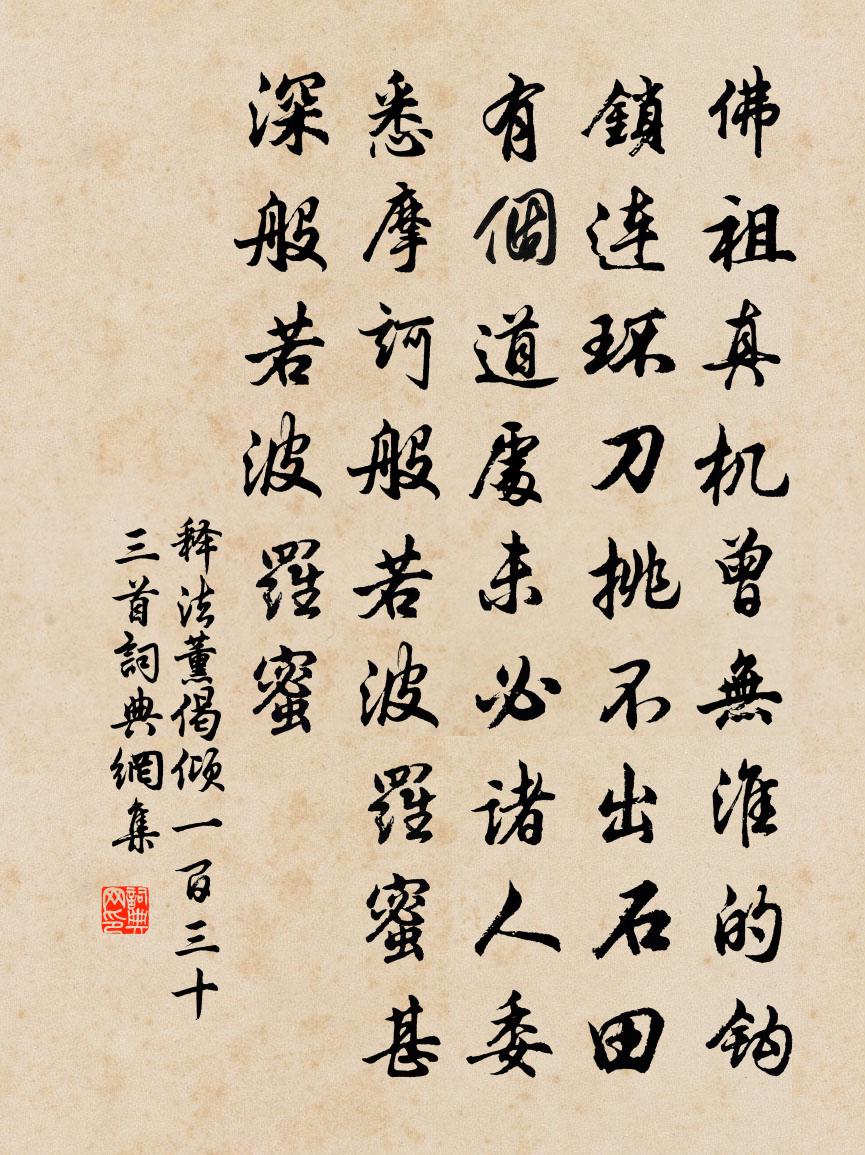 佛祖真机曾無准的鈎
鎖连环刀挑不出石田
有個道處未必諸人委
悉摩訶般若波羅蜜甚
深般若波羅蜜
释法薰偈倾一百三十
三首詞典網集
詞典网印